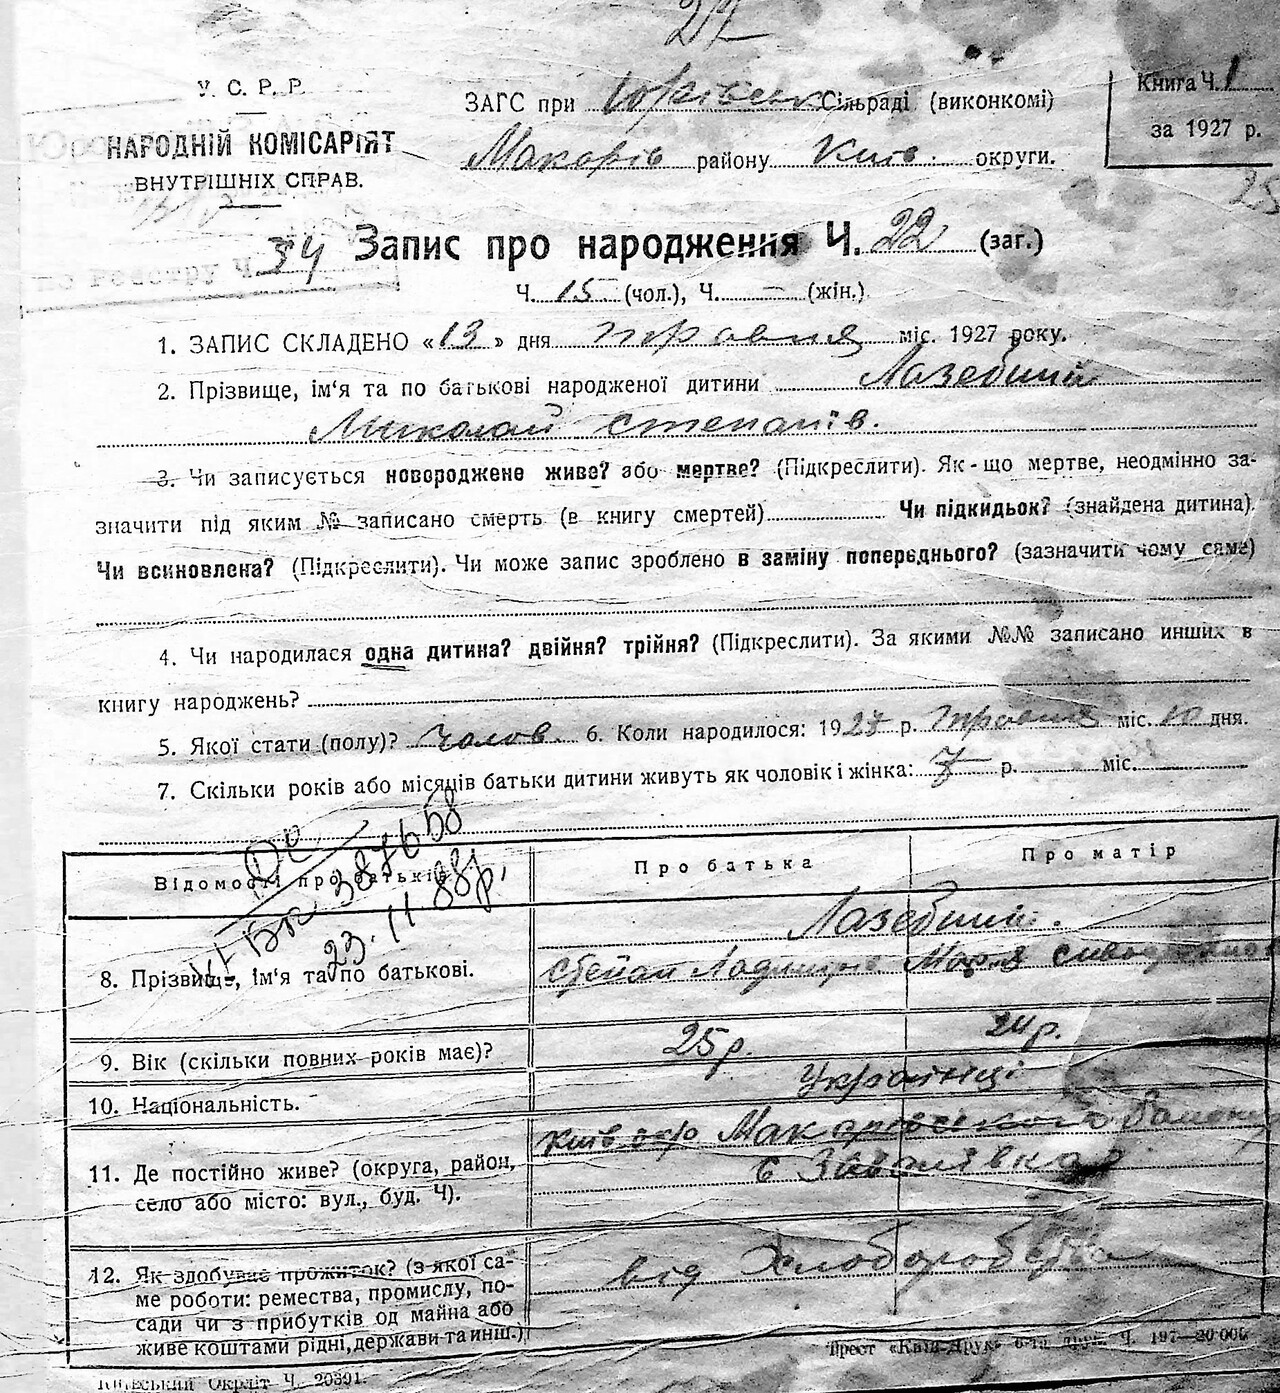 27
У. С. Р. Р.
НАРОДНІЙ КОМІСАРІЯТ
ВНУТРІШНІХ СПРАВ.
ЗАГС при Юрівськ Сільраді (виконкомі)
Макарів району Київ. округи.
Книга Ч. 1
за 1927 р.
25
по реєстру Ч. 34
Запис про народження Ч. 22 (заг.)
Ч. 15 (чол.), Ч. — (жін.)
1. ЗАПИС СКЛАДЕНО «13» дня травня міс. 1927 року.
2. Прізвище, ім‘я та по батькові народженої дитини Лазебний
Миколай Степанів.
3. Чи записується новороджене живе? або мертве? (Підкреслити). Як-що мертве, неодмінно за-
значити під яким № записано смерть (в книгу смертей) Чи підкидьок? (знайдена дитина).
Чи всиновлена? (Підкреслити). Чи може запис зроблено в заміну попереднього? (зазначити чому саме)
4. Чи народилася одна дитина? двійня? трійня? (Підкреслити). За якими №№ записано инших в
книгу народжень?
5. Якої стати (полу)? Чолов. 6. Коли народилося: 1927 р. травня міс. 10 дня.
7. Скільки років або місяців батьки дитини живуть як чоловік і жінка: 7 р. міс.
Відомості про батьків
Про батька
Про матір
387658
23.11.88р.
8. Прізвище, ім‘я та по батькові.
Лазебний.
Степан Марія
9. Вік (скільки повних років має)?
25р. 24р.
10. Національність.
Українці
11. Де постійно живе? (округа, район,
село або місто: вул., буд. Ч).
Київ окр Макарівського району
12. Як здобуває прожиток? (з якої са-
ме роботи: ремества, промислу, по-
сади чи з прибутків од майна або
живе коштами рідні, держави та инш.)
від Хлоборобства
Трест «Київ-Друк» 6-та друк. Ч. 197—20 000
Київський Окрліт Ч. 20391.